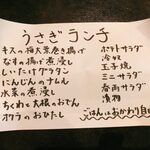 うさぎランチ
キスの梅大葉巻き揚げ
なすの揚げ煮浸し
しいたけグラタン
にんじんのナムル
水菜の煮浸し
ちくわと大根のおでん
オクラのおひたし
ポテトサラダ
冷奴
玉子焼
ミニサラダ
春雨サラダ
漬物
ごはんはおかわり自